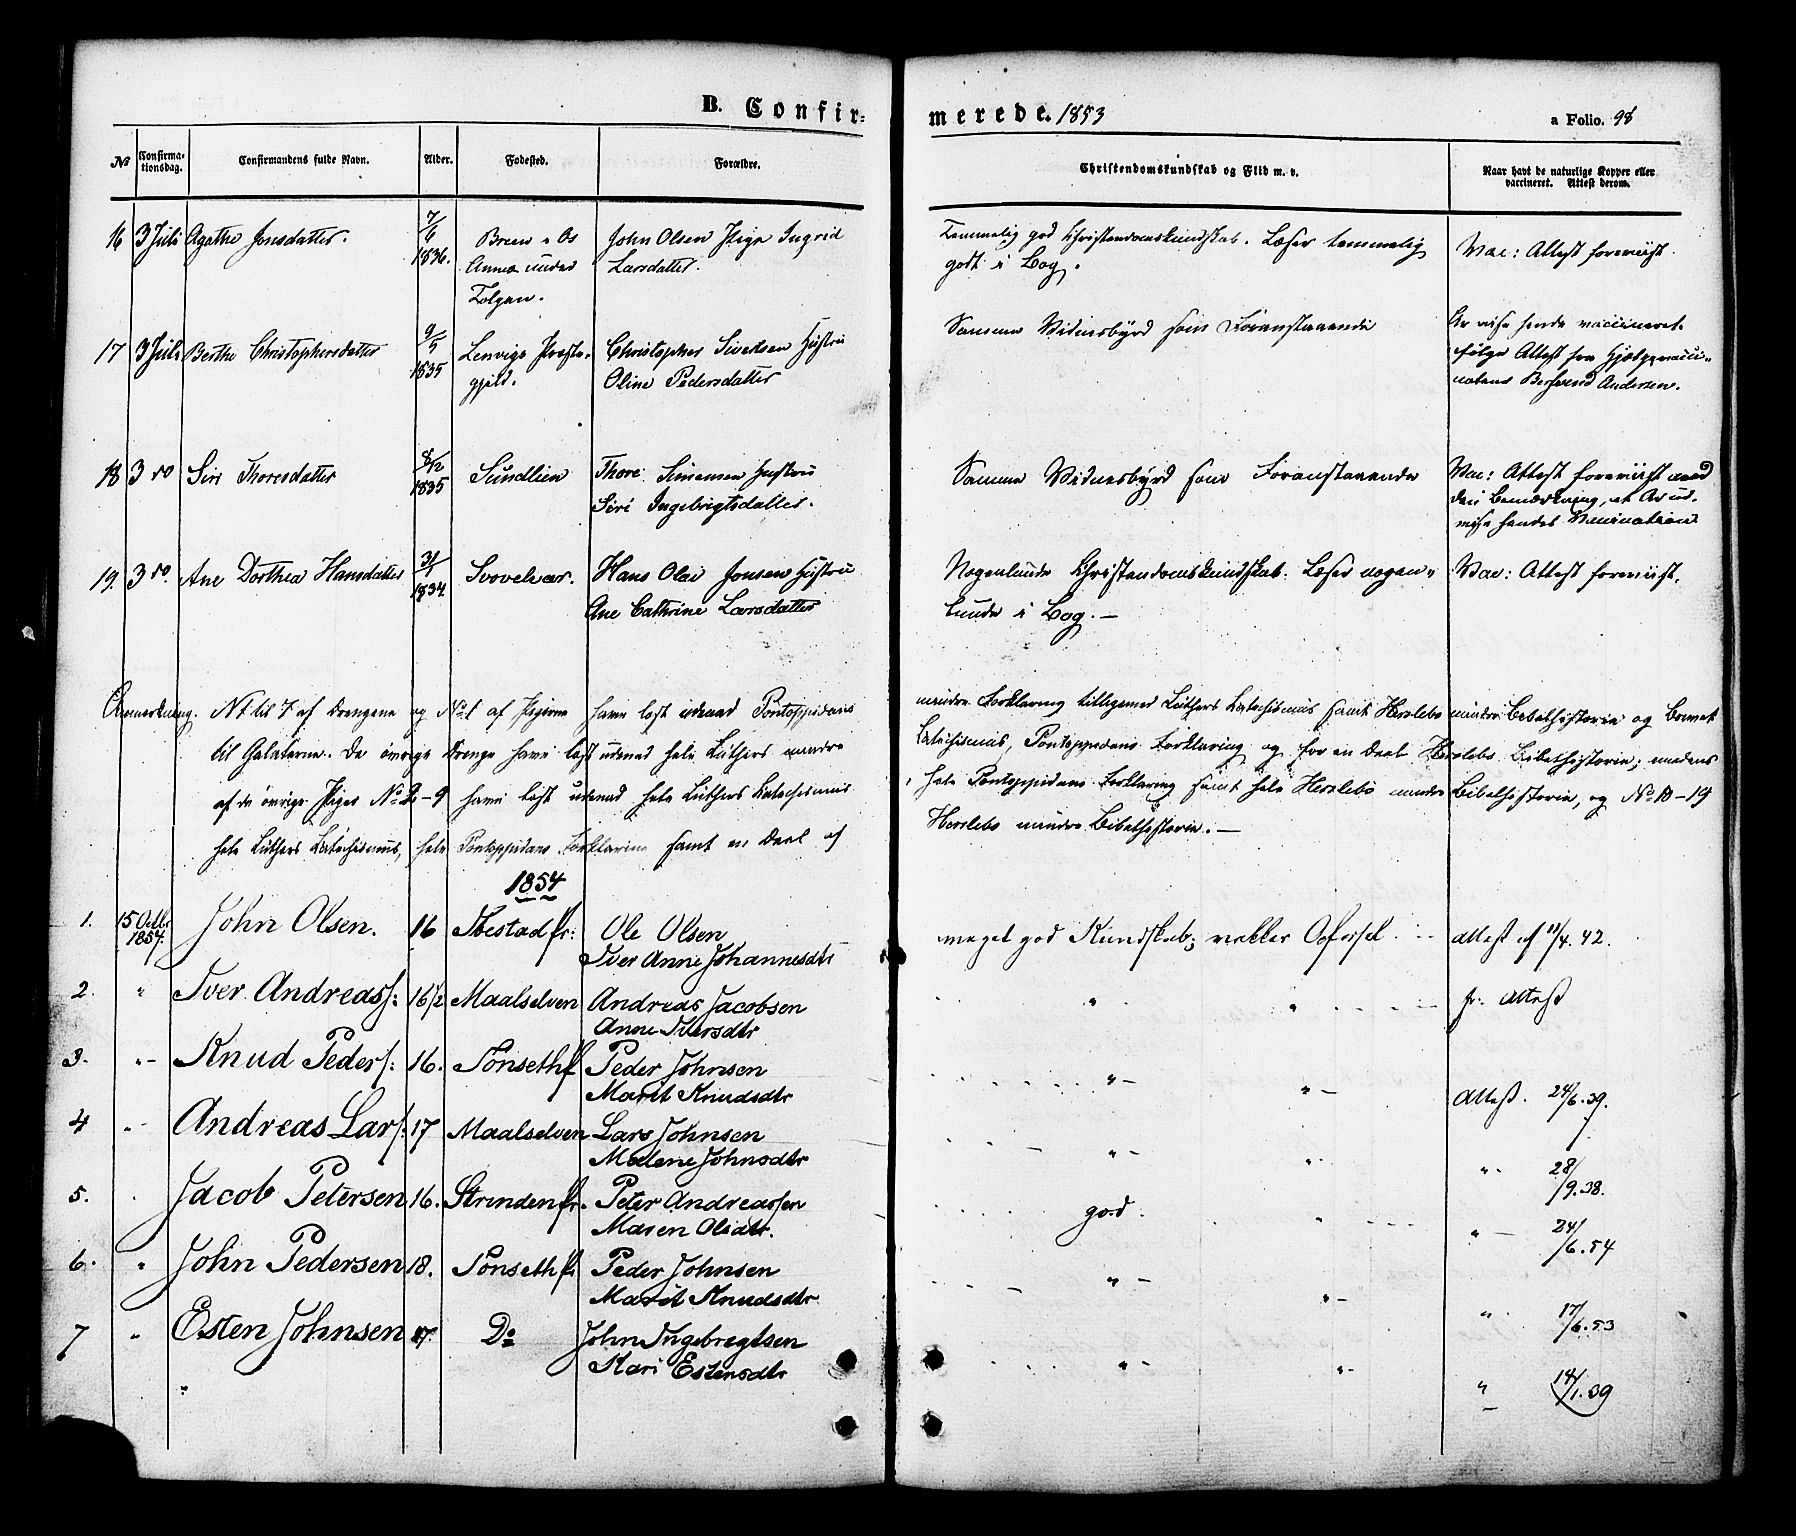 B. Confir-
merede. 1853
a Folio. 98
No
Confirma-
tionsdag.
Confirmandens fulde Navn.
Alder.
Fødested.
Forældre.
Christendomskundskab og Flid m. v.
Naar havt de naturlige Kopper eller
vaccineret. Attest derom.
16 3 Juli Agathe Jonsdatter. 7/6 1836. Breen i Os
Annex under
Tolgen.
John Olsen Pige Ingrid
Larsdatter.
Temmelig god Christendomskundskab. Læser temmelig
godt i Bog.
Vac: Attest foreviist.
17 3 Juli Berthe Christophersdatter 9/5 1835 Lenvigs Præste-
gjeld.
Christopher Sivertsen Hustru
Oline Pedersdatter
Samme Vidnesbyrd som Foranstaaende
Ar vise hende vaccineret
ifølge Attest fra Hjælpevacci-
natens Andersen.
18 3 do Siri Thoresdatter 8/12 1835 Sundlien
Thore Simensen Hustru
Siri Ingebrigtsdatter.
Samme Vidnesbyrd som Foranstaaende
Vac: Attest foreviist med
den Bemærkning, at Ar ud-
vise hendes Vaccination
19. 3 do. Ane Dorthea Hansdatter 31/1 1834. Svovelvær.
Hans Olai Jonsen Hustru
Ane Cathrine Larsdatter
Nogenlunde Christendomskundskab. Læser nogen-
lunde i Bog. —
Vac: Attest foreviist.
Anmerkning. No 1 til 7 af Drengene og No 1 af Pigerne have læst udenad Pontoppidans
mindre Forklaring tilligemed Luthers Katechismus samt Herslebs mindre Bibelhistorie og Brevet
til Galaterne. De øvrige Drenge have læst udenad hele Luthers mindre
Katechismus, Pontoppidans Forklaring og for en Deel Herslebs Bibelhistorie; medens
af de øvrige Piger No 2-9 have læst udenad hele Luthers Katechismus
, hele Pontoppidans Forklaring samt hele Herslebs mindre Bibelhistorie, og No 10-19
hele Luthers Katechismus, hele Pontoppidans Forklaring samt en Deel af
Herslebs mindre Bibelhistorie. —
1854
1. 15 Octbr 1854. John Olsen. 16 Ibestad Pr: Ole Olsen
Iver Anne Johannesdtr
meget god Kundskab; vakker Opførsel. Attest af 11/4. 42.
2. " Iver Andreass: 16 1/2 Maalselven Andreas Jacobsen
Anne Iversdtr
" " fr: Attest
3. "- Knud Peders: 16. Tønseth Pr Peder Johnsen
Marit Knudsdtr
"- "- Attest. 24/6. 39.
4 " Andreas Lars: 17 Maalselven Lars Johnsen
Malene Johnsdtr
"- " " 28/9. 38.
5. Jacob Petersen 16. Strinden Pr. Peter Andreassen
Maren Olsdtr.
god. " " 24/6. 54
6. " John Pedersen 18. Tønseth Pr Peder Johnsen
Marit Knudsdtr
"- "- " 17/6. 53
7 " Esten Johnsen 17. Do John Ingebregtsen
Kari Estensdtr
"- "- " 14/1. 39